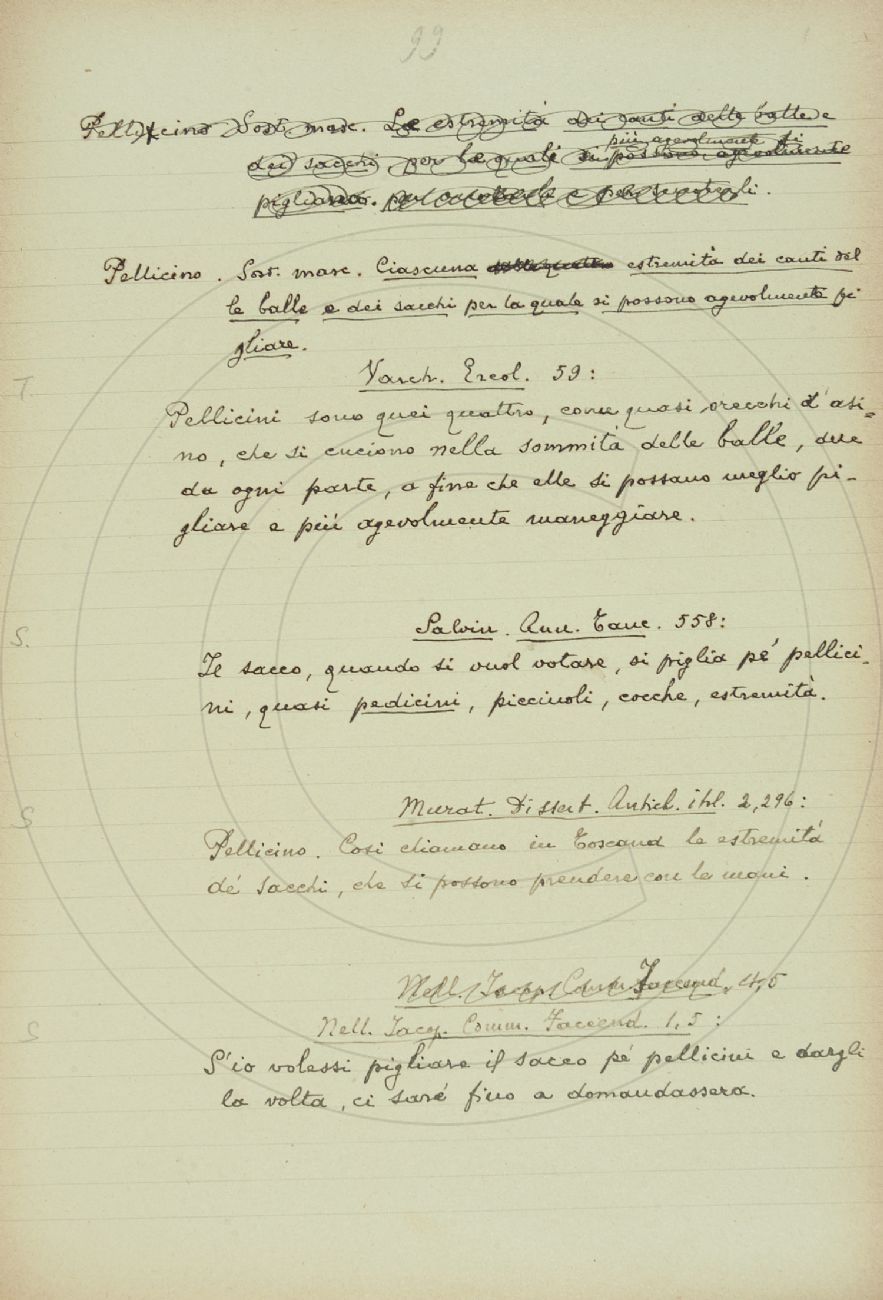 99
Pellicino Sost. masc. Le estremità dei canti delle balle e
più agevolmente si
dei sacchi per le quali si possono agevolmente
pigliare. per e per
Pellicino. Sost. masc. Ciascuna delle quattro estremità dei canti del
le balle e dei sacchi per la quale si possono agevolmente pi
gliare.
Varch. Ercol. 59:
T.
Pellicini sono quei quattro, come quasi orecchi d'asi=
no, che si cuciono nella sommità delle balle, due
da ogni parte, a fine che elle si possano meglio pi-
gliare e più agevolmente maneggiare.
Salvin. Ann. Tanc. 558:
S.
Il sacco, quando si vuol votare, si piglia pe' pellici-
ni, quasi pedicini, picciuoli, cocche, estremità.
Murat. Dissert. Antich. ital. 2,296:
S
Pellicino. Così chiamano in Toscana le estremità
de' sacchi, che si possono prendere con le mani.
Nell. Iacq. Com. Faccend. 4,5
Nell. Iacq. Comm. Faccend. 1,5:
S
S'io volessi pigliare il sacco pe' pellicini e dargli
la volta, ci sare' fino a domandassera.